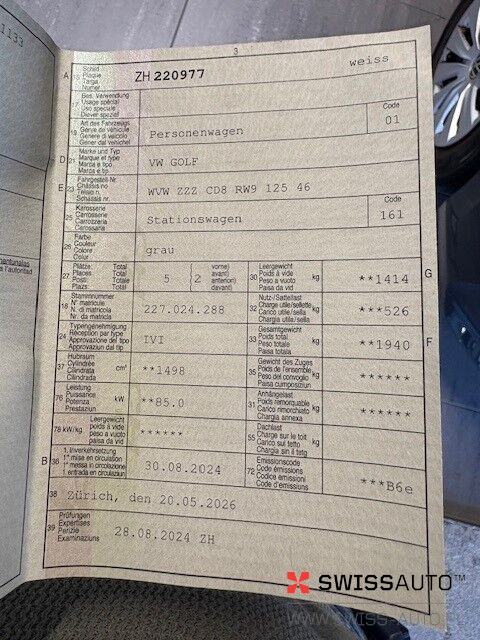 1133
3
A 15 Schild Plaque Targa Numer ZH 220977 weiss
17 Bes. Verwendung
Usage spécial
Uso speciale
Diever spezial
19 Art des Fahrzeugs
Genre de véhicule
Genere di veicolo
Gener dal vehichel
Personenwagen
Code
01
D 21 Marke und Typ
Marque et type
Marca e tipo
Marca e tip
VW GOLF
E 23 Fahrgestell-Nr.
Châssis no
Telaio n.
Schassis nr.
WVW ZZZ CD8 RW9 125 46
25 Karosserie
Carrosserie
Carrozzeria
Carossaria
Stationswagen
Code
161
26 Farbe
Couleur
Colore
Colur
grau
27 Plätze: Total
Places: Total
Posti: Totale
Plazs: Total
5
2
vorne)
avant)
anteriori)
davant)
30 Leergewicht
Poids à vide
Peso a vuoto
Paisa da vid
kg
**1414
G
18 Stammnummer
N° matricule
N. di matricola
Nr. da matricla
227.024.288
32 Nutz-/Sattellast
Charge utile/sellette
Carico utile/sella
Chargia utila/sella
kg
***526
24 Typengenehmigung
Réception par type
Approvazione del tipo
Approvaziun dal tip
IVI
33 Gesamtgewicht
Poids total
Peso totale
Paisa totala
kg
**1940
F
37 Hubraum
Cylindrée
Cilindrata
Cilindrada
cm³
**1498
35 Gewicht des Zuges
Poids de l'ensemble
Peso del convoglio
Paisa cumposiziun
kg
******
76 Leistung
Puissance
Potenza
Prestaziun
kW
**85.0
31 Anhängelast
Poids remorquable
Carico rimorchiato
Chargia annexa
kg
******
78 kW/kg
Leergewicht
poids à vide
peso a vuoto
paisa da vid
******
55 Dachlast
Charge sur le toit
Carico sul tetto
Chargia sin il tetg
kg
******
B 36 1. Inverkehrsetzung
1re mise en circulation
1a messa in circolazione
1. entrada en circulaziun
30.08.2024
72 Emissionscode
Code émissions
Codice emissioni
Code d'emissiuns
***B6e
38 Zürich, den 20.05.2026
39 Prüfungen
Expertises
Perizie
Examinaziuns
28.08.2024 ZH
SWISSAUTO™